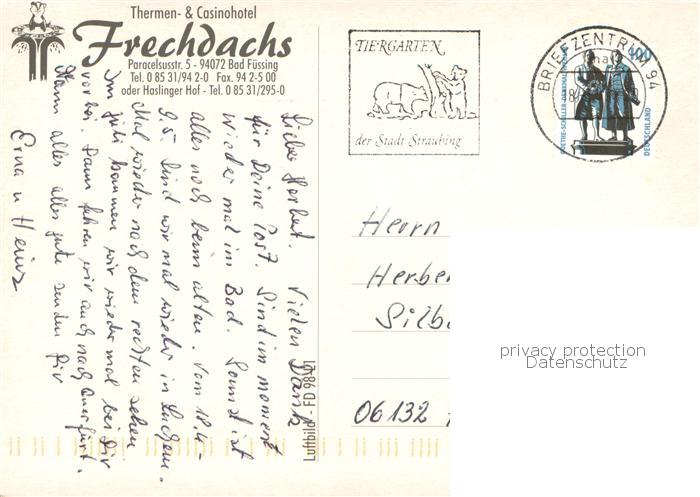 Thermen- & Casinohotel
Frechdachs
Paracelsusstr. 5 - 94072 Bad Füssing
Tel. 0 85 31/94 2-0 Fax. 94 2-5 00
oder Haslinger Hof - Tel. 0 85 31/295-0
TIERGARTEN
der Stadt Straubing
BRIEFZENTRUM 94
400
GOETHE-SCHILLER-DENKMAL
DEUTSCHLAND
Lieber Herbert. Vielen Dank
für Deine Post. Sind im moment
wieder mal im Bad. Sonst ist
alles noch beim alten. Vom 18.4-
9.5. sind wir mal wieder in Sachsen.
Mal wieder nach dem rechten sehen
Im Juli kommen wir wieder mal bei Dir
vorbei. Dann fahren wir auch nach Querfurt.
Mann alles alles gute senden Dir
Erna u Heinz
Luftbild - FD 98
Herrn
Herber
Silb
06132
privacy protection
Datenschutz